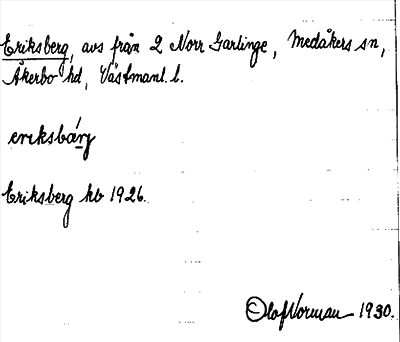 Eriksberg, avs från 2 Norr Garlinge, Medåkers sn,
Åkerbo hd, Västmanl. l.
eriksbárj
Eriksberg kb 1926.
Olof Norman 1930.